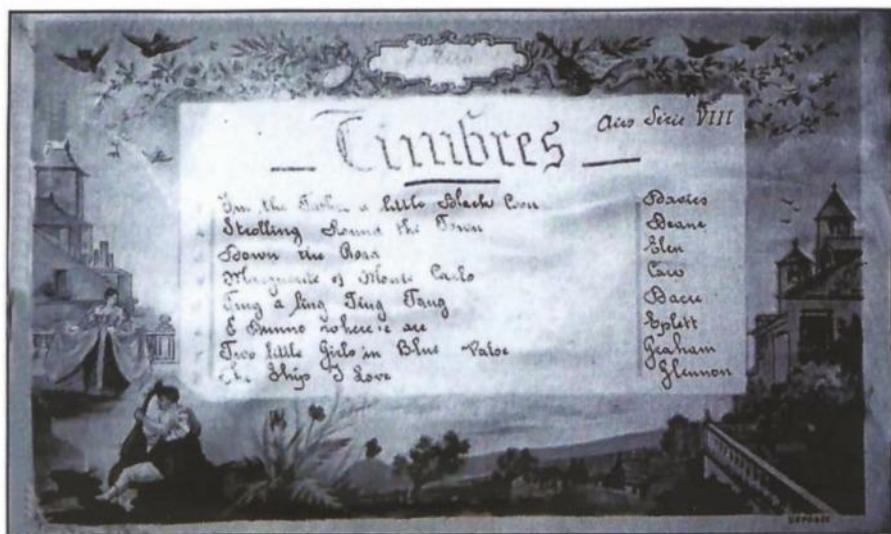 8 Airs
Airs Série VIII
Timbres
I'm the Father a little Black Coon Davies
Strolling Round the Town Deane
Down the Road Elen
Marguerite of Monte Carlo Caro
Ting a ling Ting Tang Dacre
E Dunno where 'e are Eplett
Two little Girls in Blue Valse Graham
The Ship I Love Glennon
DÉPOSÉ